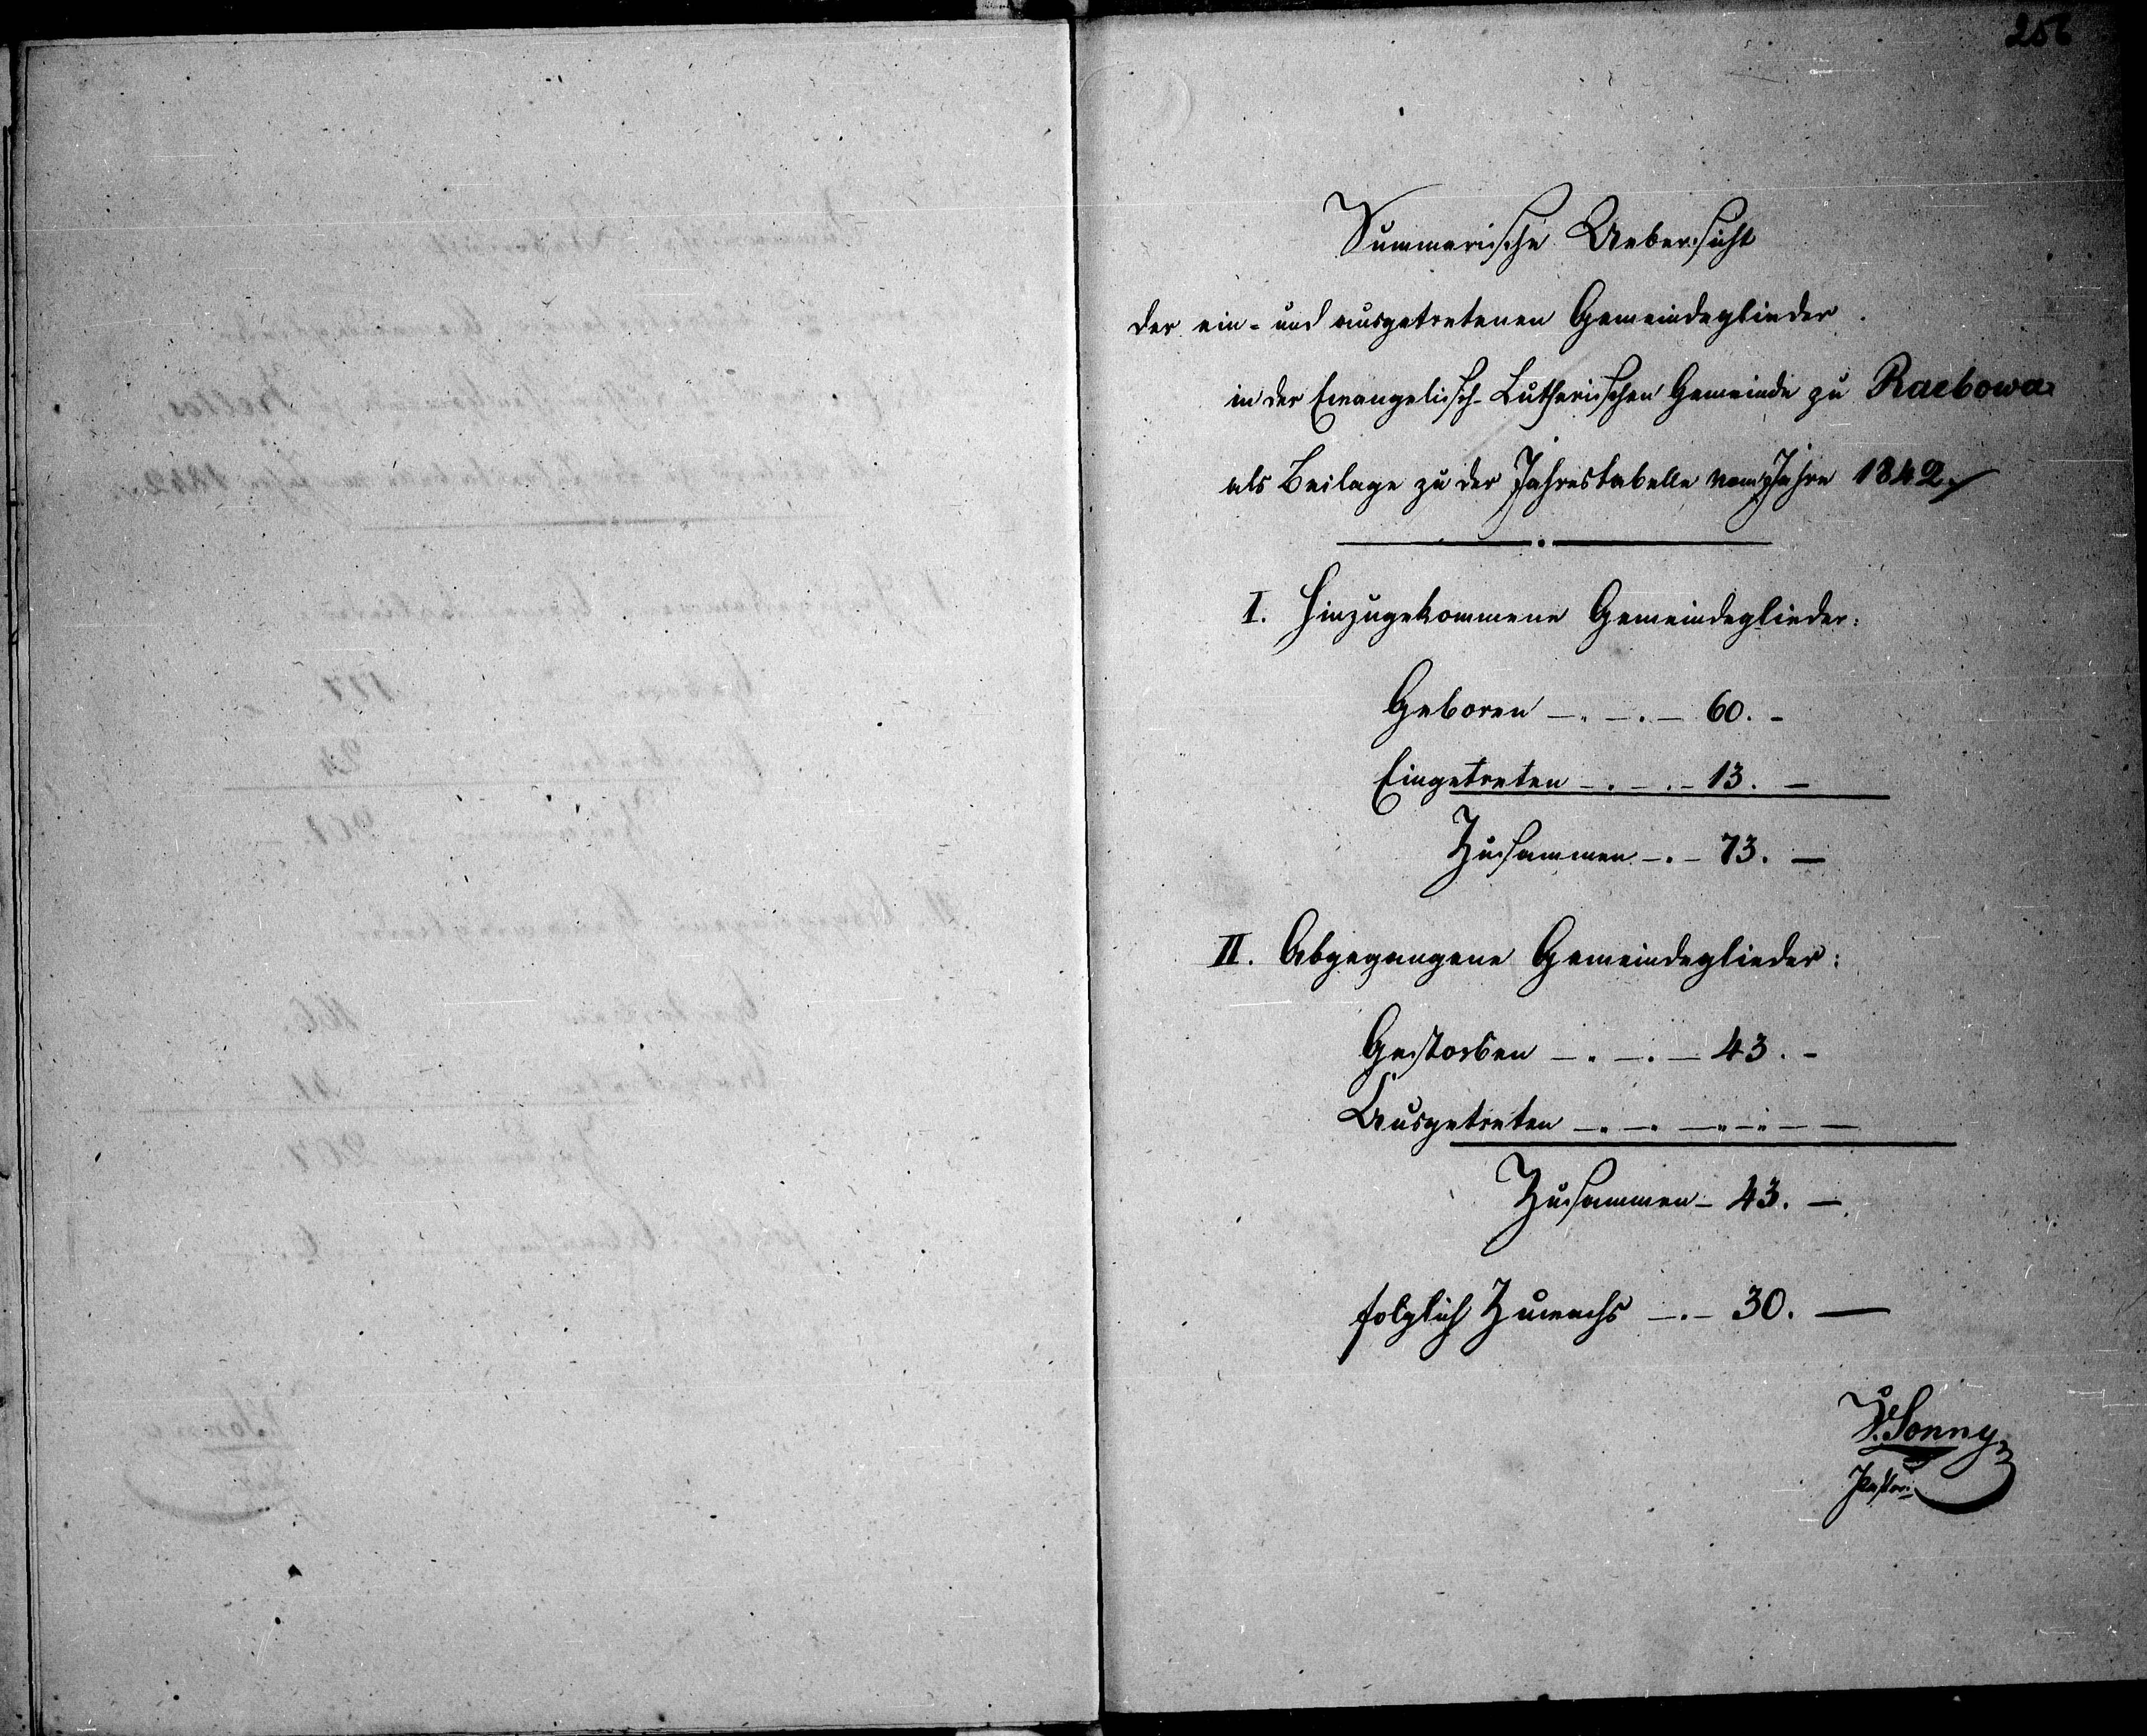 256
Summarische Uebersicht
der ein- und ausgetretenen Gemeindeglieder
in der Evangelisch-Lutherischen Gemeinde zu Raebowa
als Beilage zu der Jahrestabelle vom Jahre 1842.
I. Hinzugekommene Gemeindeglieder:
Geboren -.-.- 60. -
Eingetreten -.-.- 13. -
Zusammen -.- 73. -
II. Abgegangene Gemeindeglieder:
Gestorben -.-.- 43. -
Ausgetreten -.-.-.-.-
Zusammen - 43. -
folglich Zuwachs -.- 30. -
Sonny
Pastor.